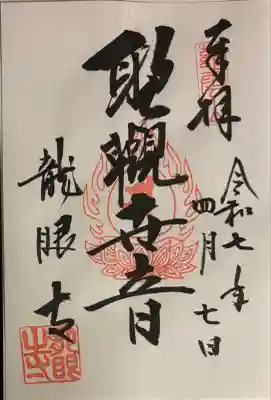 奉拝
令和七年
四月七日
聖観世音
龍眼寺